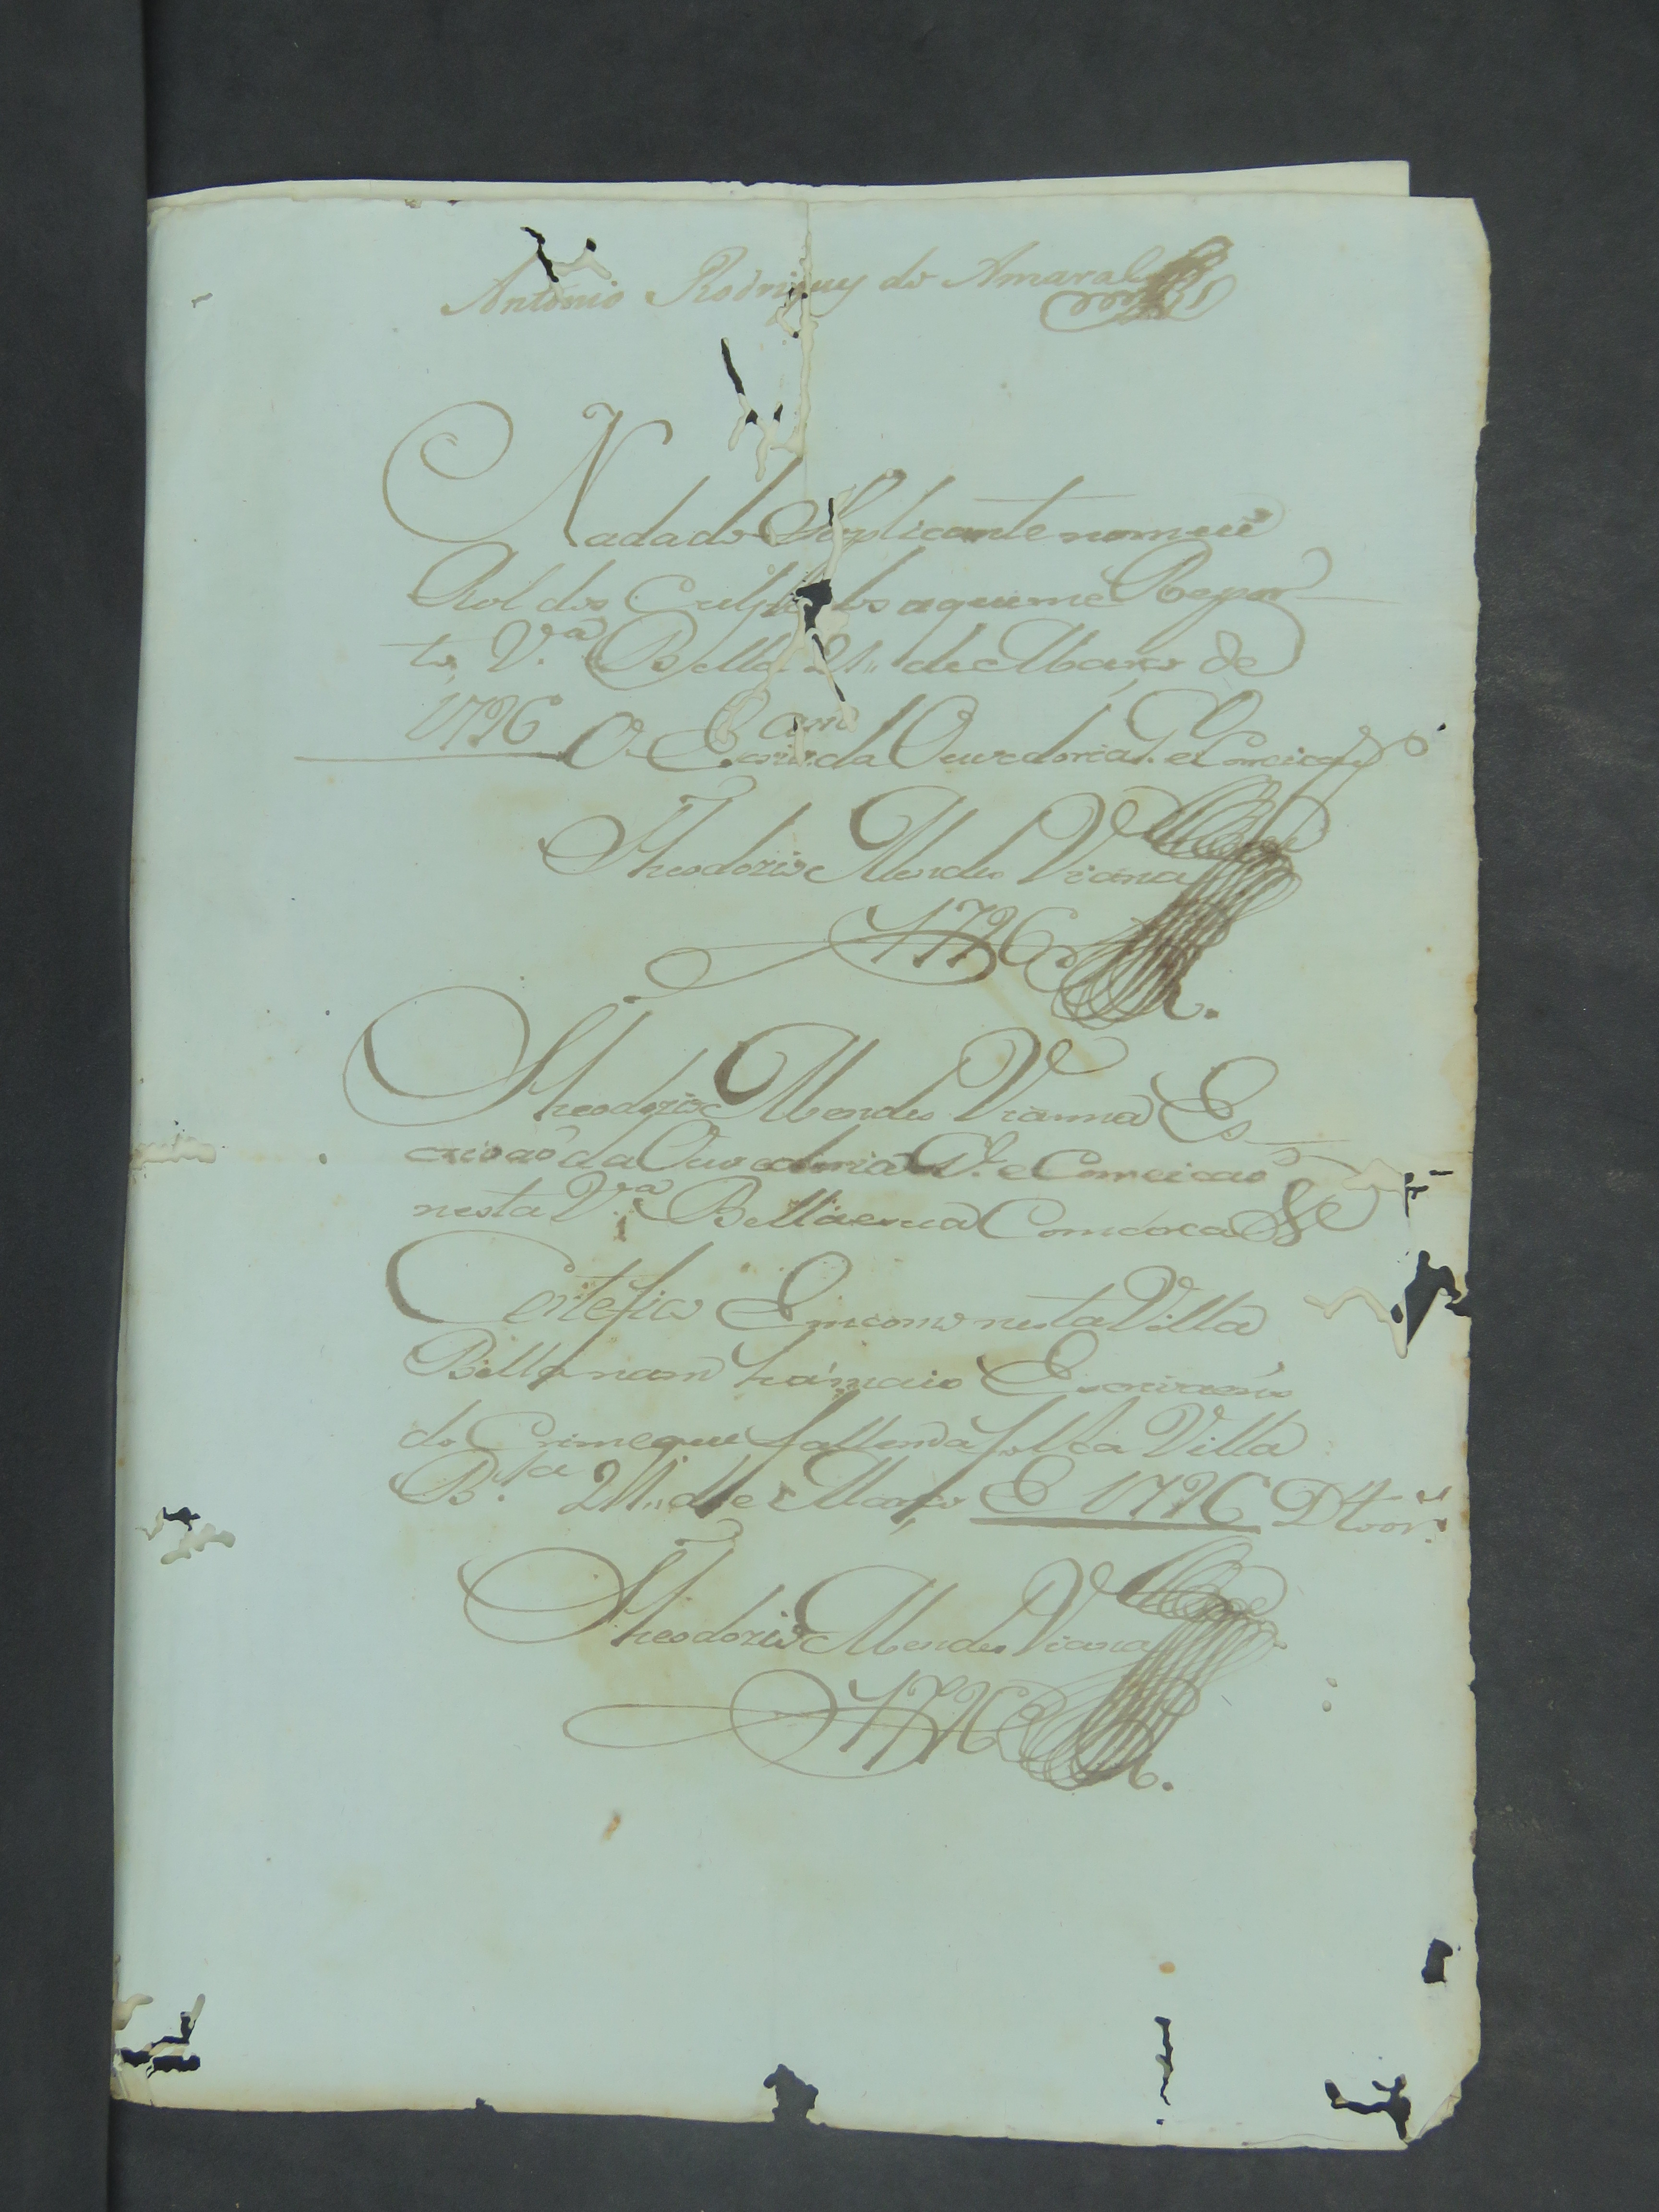 Antonio Rodriguez do Amaral
Nada do Suplicante nomeu
Rol dos Culpados aqueme Repor
to, V.ª Bella 21,, de Março de
1796 O Escrivam da Ouvedoria G. e Correicaõ
Theodozio Mendes Viana
1796
Theodozio Mendes Vianna Es
crivaõ da Ouvedoria G.l e Correicaõ
nesta V.ª Bella esua Comarca &c
Certefico Emcomo nesta Villa
Bella nam há maio Escrivaens
do Crime que fallem a folha Villa
B.la 21,, de Março E 1796
Theodozio Mendes Viana
1796